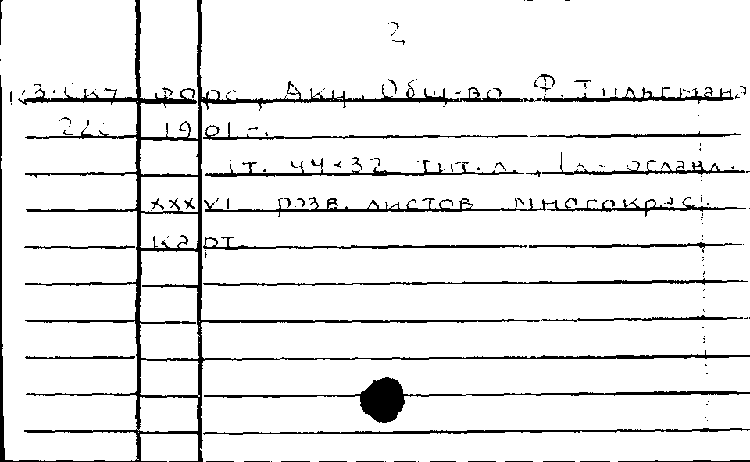 2
КЗ.Скл форс, Акц. Общ-во Ф. Тильгмана
1901 г.
1т. 44×32 тит.л., 1л. оглавл.
XXXVI разв. листов многокрас.
карт.